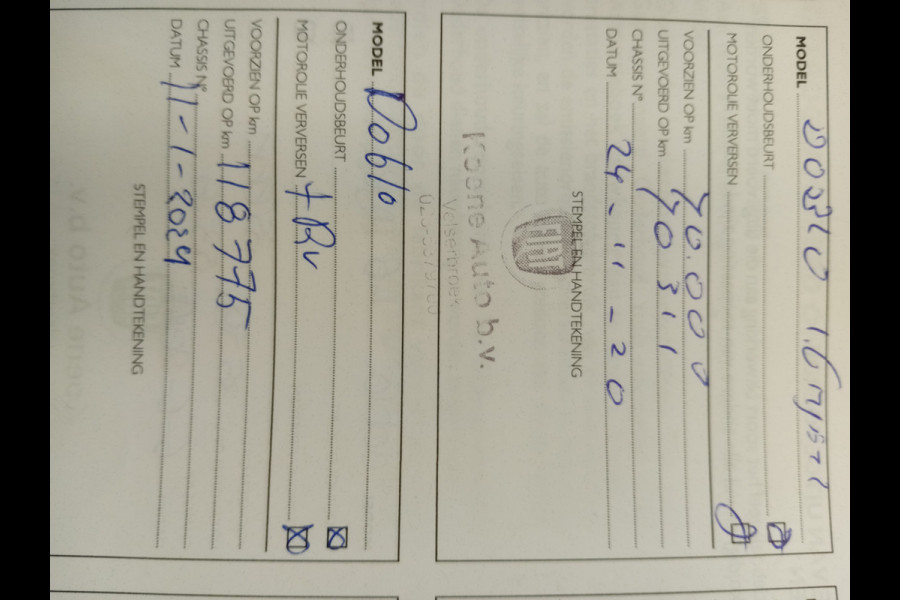 MODEL DOBLO 1.6 MJET
ONDERHOUDSBEURT
MOTOROLIE VERVERSEN
VOORZIEN OP km 70.000
UITGEVOERD OP km 70311
CHASSIS N°
DATUM 24-11-20
STEMPEL EN HANDTEKENING
FIAT
Koene Auto b.v.
Velserbroek
MODEL Doblo
ONDERHOUDSBEURT
MOTOROLIE VERVERSEN
VOORZIEN OP km
UITGEVOERD OP km 118775
CHASSIS N°
DATUM 11-1-2024
STEMPEL EN HANDTEKENING